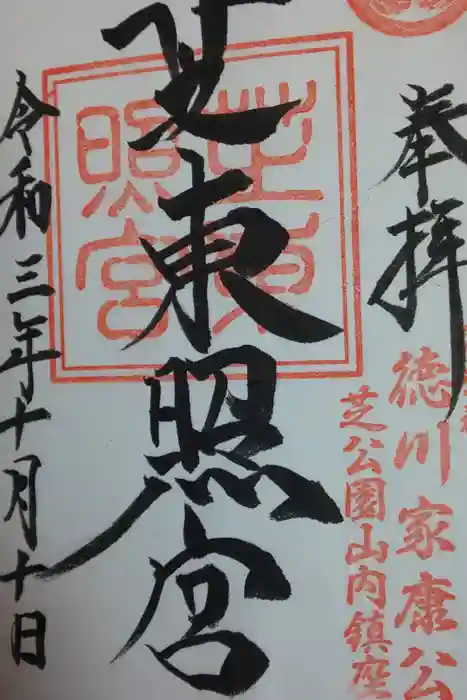 奉拝
徳川家康公
芝公園山内鎮座
芝東照宮
芝東照宮
令和三年十月十日